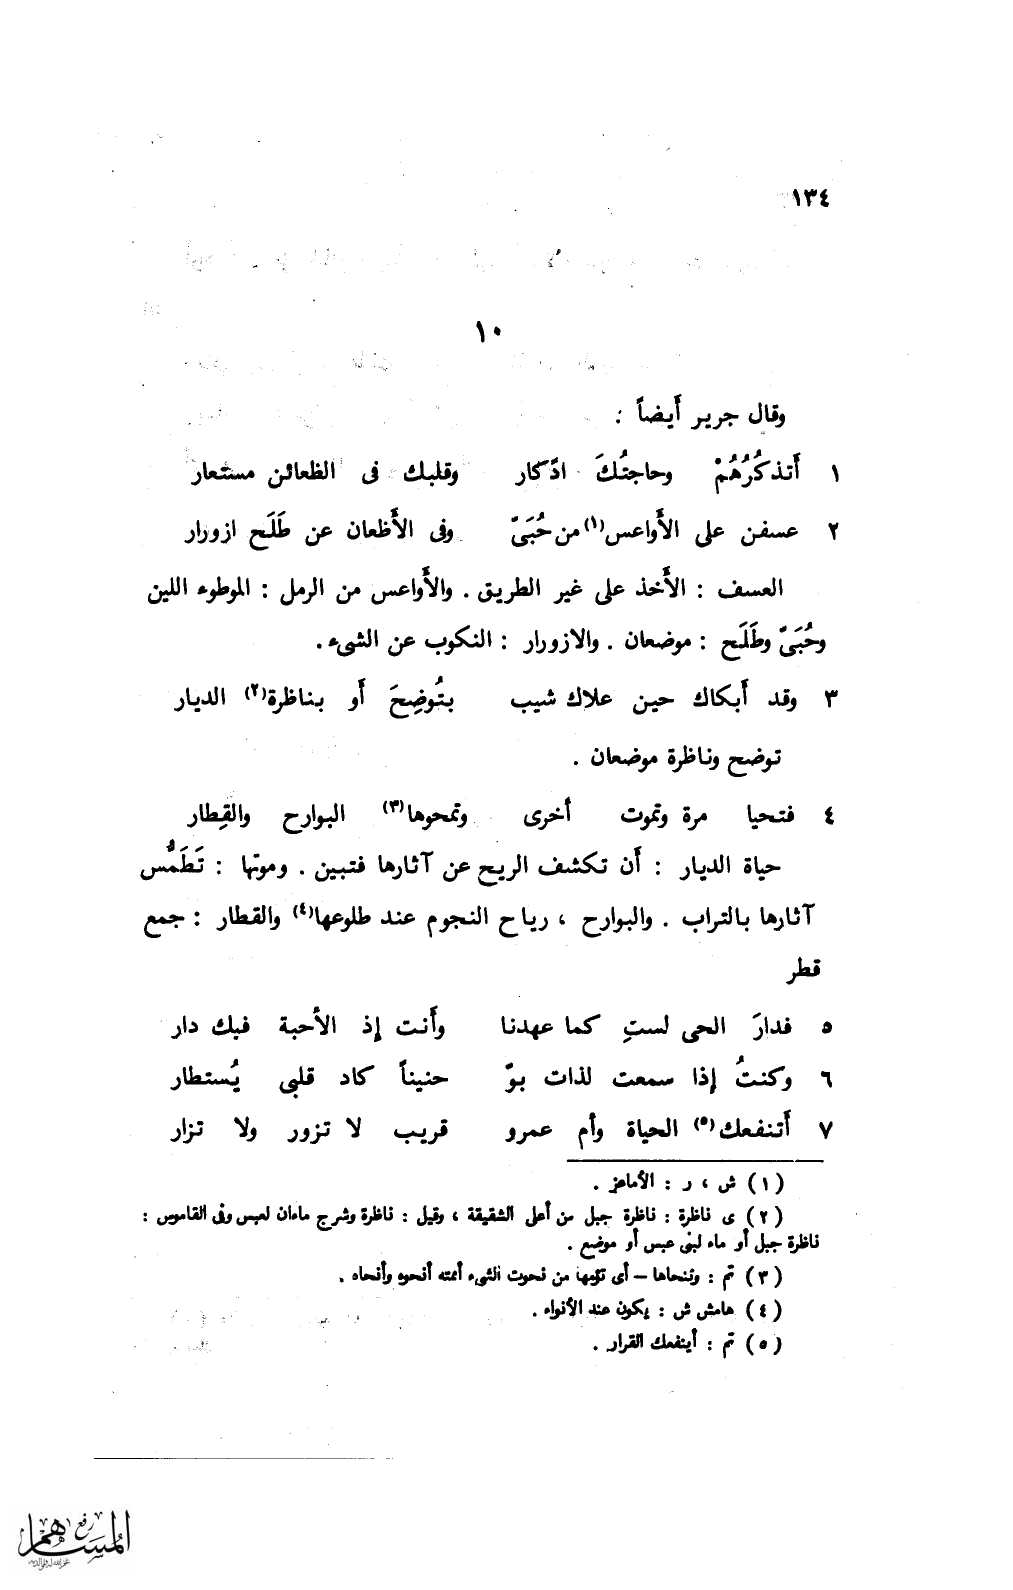 ١٣٤
١٠
وقال جرير أَيضاً :
١ أَتذكُرُهُمْ وحاجتُكَ ادّكار وقلبك فى الظعائن مستعار
٢ عسفن على الأَواعس(١) من حُبَىّ وفى الأَظعان عن طَلَح ازورار
العسف : الأَخذ على غير الطريق . والأَواعس من الرمل : الموطوء اللين
وحُبَىّ وطَلَح : موضعان . والازورار : النكوب عن الشىء .
٣ وقد أَبكاك حين علاك شيب بتُوضِحَ أَو بناظرة(٢) الديار
توضح وناظرة موضعان .
٤ فتحيا مرة وتموت أخرى وتمحوها(٣) البوارح والقِطار
حياة الديار : أَن تكشف الريح عن آثارها فتبين . وموتها : تَطَمُّس
آثارها بالتراب . والبوارح ، رياح النجوم عند طلوعها(٤) والقطار : جمع
قطر
٥ فدارَ الحى لستِ كما عهدنا وأَنت إذ الأحبة فيك دار
٦ وكنتُ إذا سمعت لذات بوّ حنيناً كاد قلبى يُستطار
٧ أَتنفعك(٥) الحياة وأم عمرو قريب لا تزور ولا تزار
(١) ش ، ر : الأماعز .
(٢) ى ناظرة : ناظرة جبل من أعلى الشقيقة ، وقيل : ناظرة وشرج ماءان لعبس وفى القاموس :
ناظرة جبل أو ماء لبنى عبس أو موضع .
(٣) تم : وتنحاها – أى تؤمها من نحوت الشىء أممته أنحوه وأنحاه .
(٤) هامش ش : يكون عند الأنواء .
(٥) تم : أينفعك القرار .
رفع
المساهم